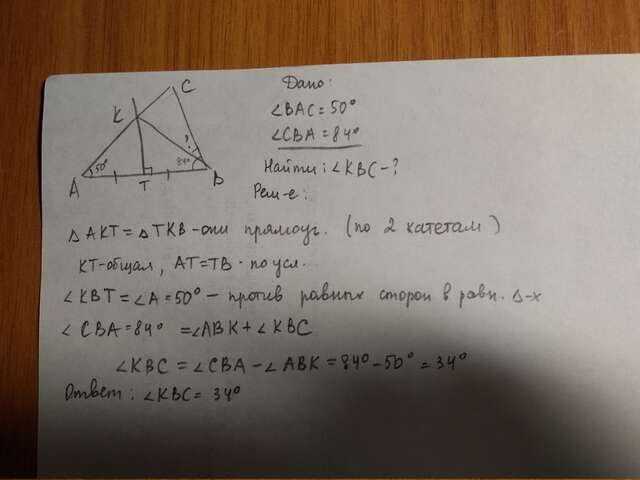 C
K
50°
84°
?
A
T
B
Дано:
∠BAC = 50°
∠CBA = 84°
Найти: ∠KBC - ?
Реш-е:
△AKT = △TKB - они прямоуг. (по 2 катетам)
KT - общая, AT = TB - по усл.
∠KBT = ∠A = 50° - против равных сторон в равн. △-х
∠CBA = 84° = ∠ABK + ∠KBC
∠KBC = ∠CBA - ∠ABK = 84° - 50° = 34°
Ответ: ∠KBC = 34°